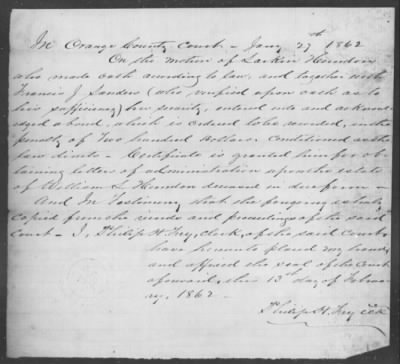 In Orange County Court - Jany 27th 1862
On the motion of Larkin Herndon
who made oath according to law, and together with
Francis J. Sanders (who justified upon oath as to
his sufficiency) his security, entered into and acknowl
edged a bond, which is ordered to be recorded, in the
penalty of Two hundred dollars conditioned as the
law directs - Certificate is granted him for ob
taining letters of administration upon the estate
of William S. Herndon deceased in due form -
And In Testimony that the foregoing is truly
copied from the records and proceedings of the said
Court - I, Philip H. Fry, Clerk, of the said Court,
have hereunto placed my hand,
and affixed the seal of the Court
aforesaid, this 13th day of Febru
ary, 1862 -
Philip H. Fry clk